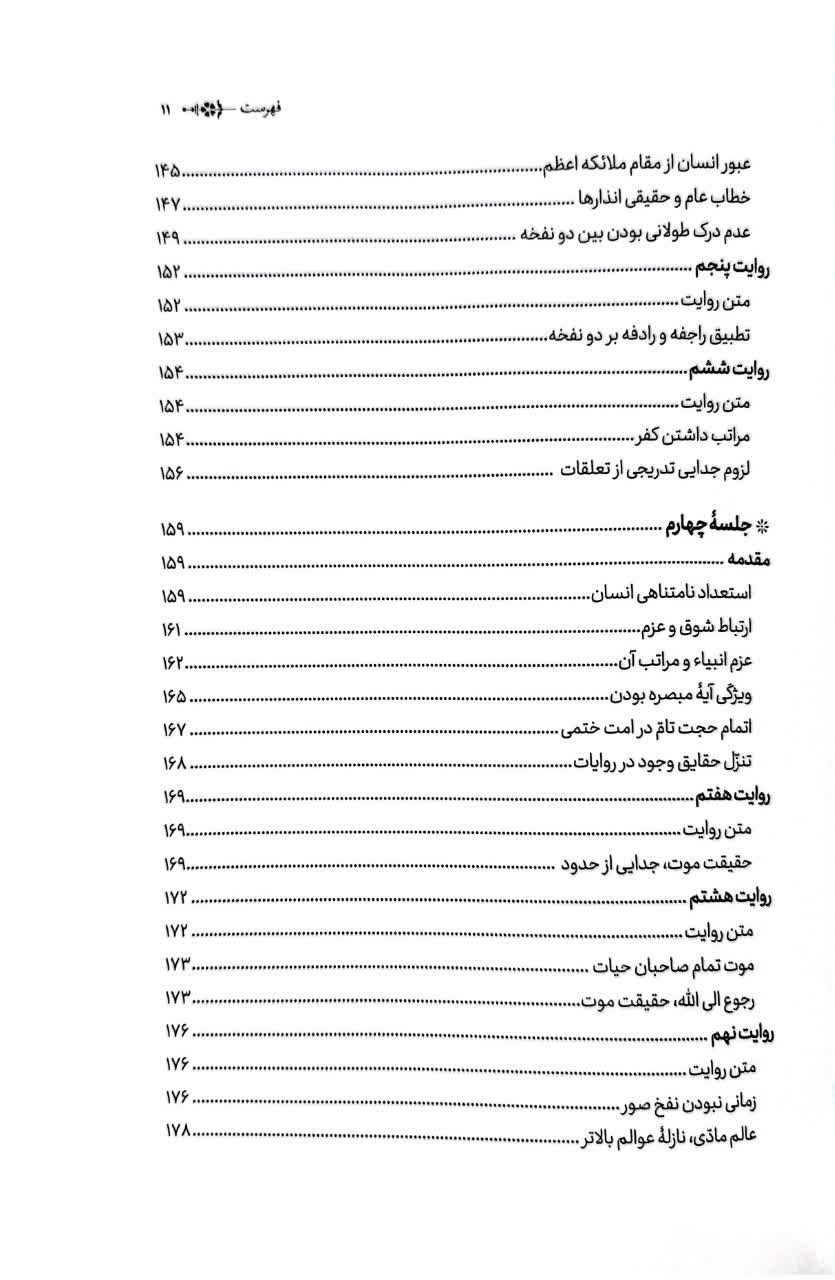 فهرست ۱۱
عبور انسان از مقام ملائکه اعظم ۱۴۵
خطاب عام و حقیقی انذارها ۱۴۷
عدم درک طولانی بودن بین دو نفخه ۱۴۹
روایت پنجم ۱۵۲
متن روایت ۱۵۲
تطبیق راجفه و رادفه بر دو نفخه ۱۵۳
روایت ششم ۱۵۴
متن روایت ۱۵۴
مراتب داشتن کفر ۱۵۴
لزوم جدایی تدریجی از تعلقات ۱۵۶
❊ جلسهٔ چهارم ۱۵۹
مقدمه ۱۵۹
استعداد نامتناهی انسان ۱۵۹
ارتباط شوق و عزم ۱۶۱
عزم انبیاء و مراتب آن ۱۶۲
ویژگی آیهٔ مبصره بودن ۱۶۵
اتمام حجت تامّ در امت ختمی ۱۶۷
تنزّل حقایق وجود در روایات ۱۶۸
روایت هفتم ۱۶۹
متن روایت ۱۶۹
حقیقت موت، جدایی از حدود ۱۶۹
روایت هشتم ۱۷۲
متن روایت ۱۷۲
موت تمام صاحبان حیات ۱۷۳
رجوع الی الله، حقیقت موت ۱۷۳
روایت نهم ۱۷۶
متن روایت ۱۷۶
زمانی نبودن نفخ صور ۱۷۶
عالم مادّی، نازلهٔ عوالم بالاتر ۱۷۸